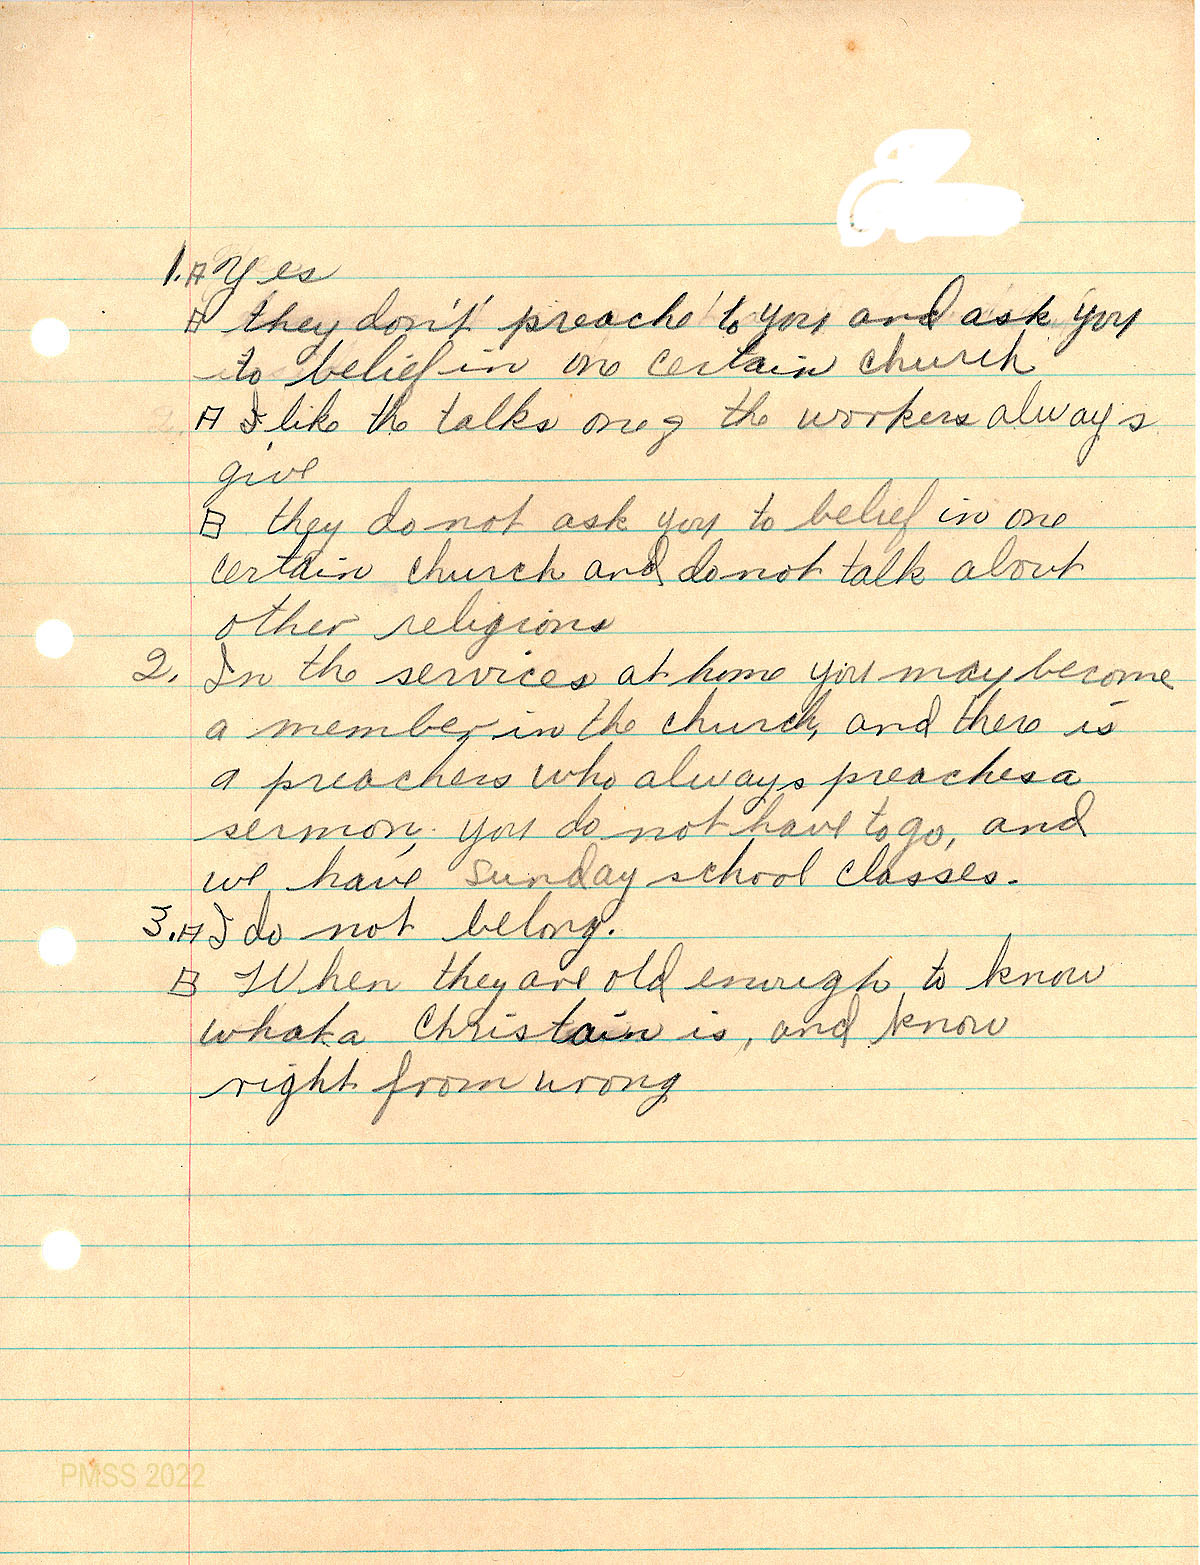 1. A Yes
A they don't preache to you and ask you
to belief in one certain church
A I like the talks one of the workers always
give
B they do not ask you to belief in one
certain church and do not talk about
other religions
2. In the services at home you may become
a member in the church, and there is
a preachers who always preaches a
sermon, you do not have to go, and
we have Sunday school classes.
3. A I do not belong.
B When they are old enough to know
what a Christain is, and know
right from wrong
PMSS 2022